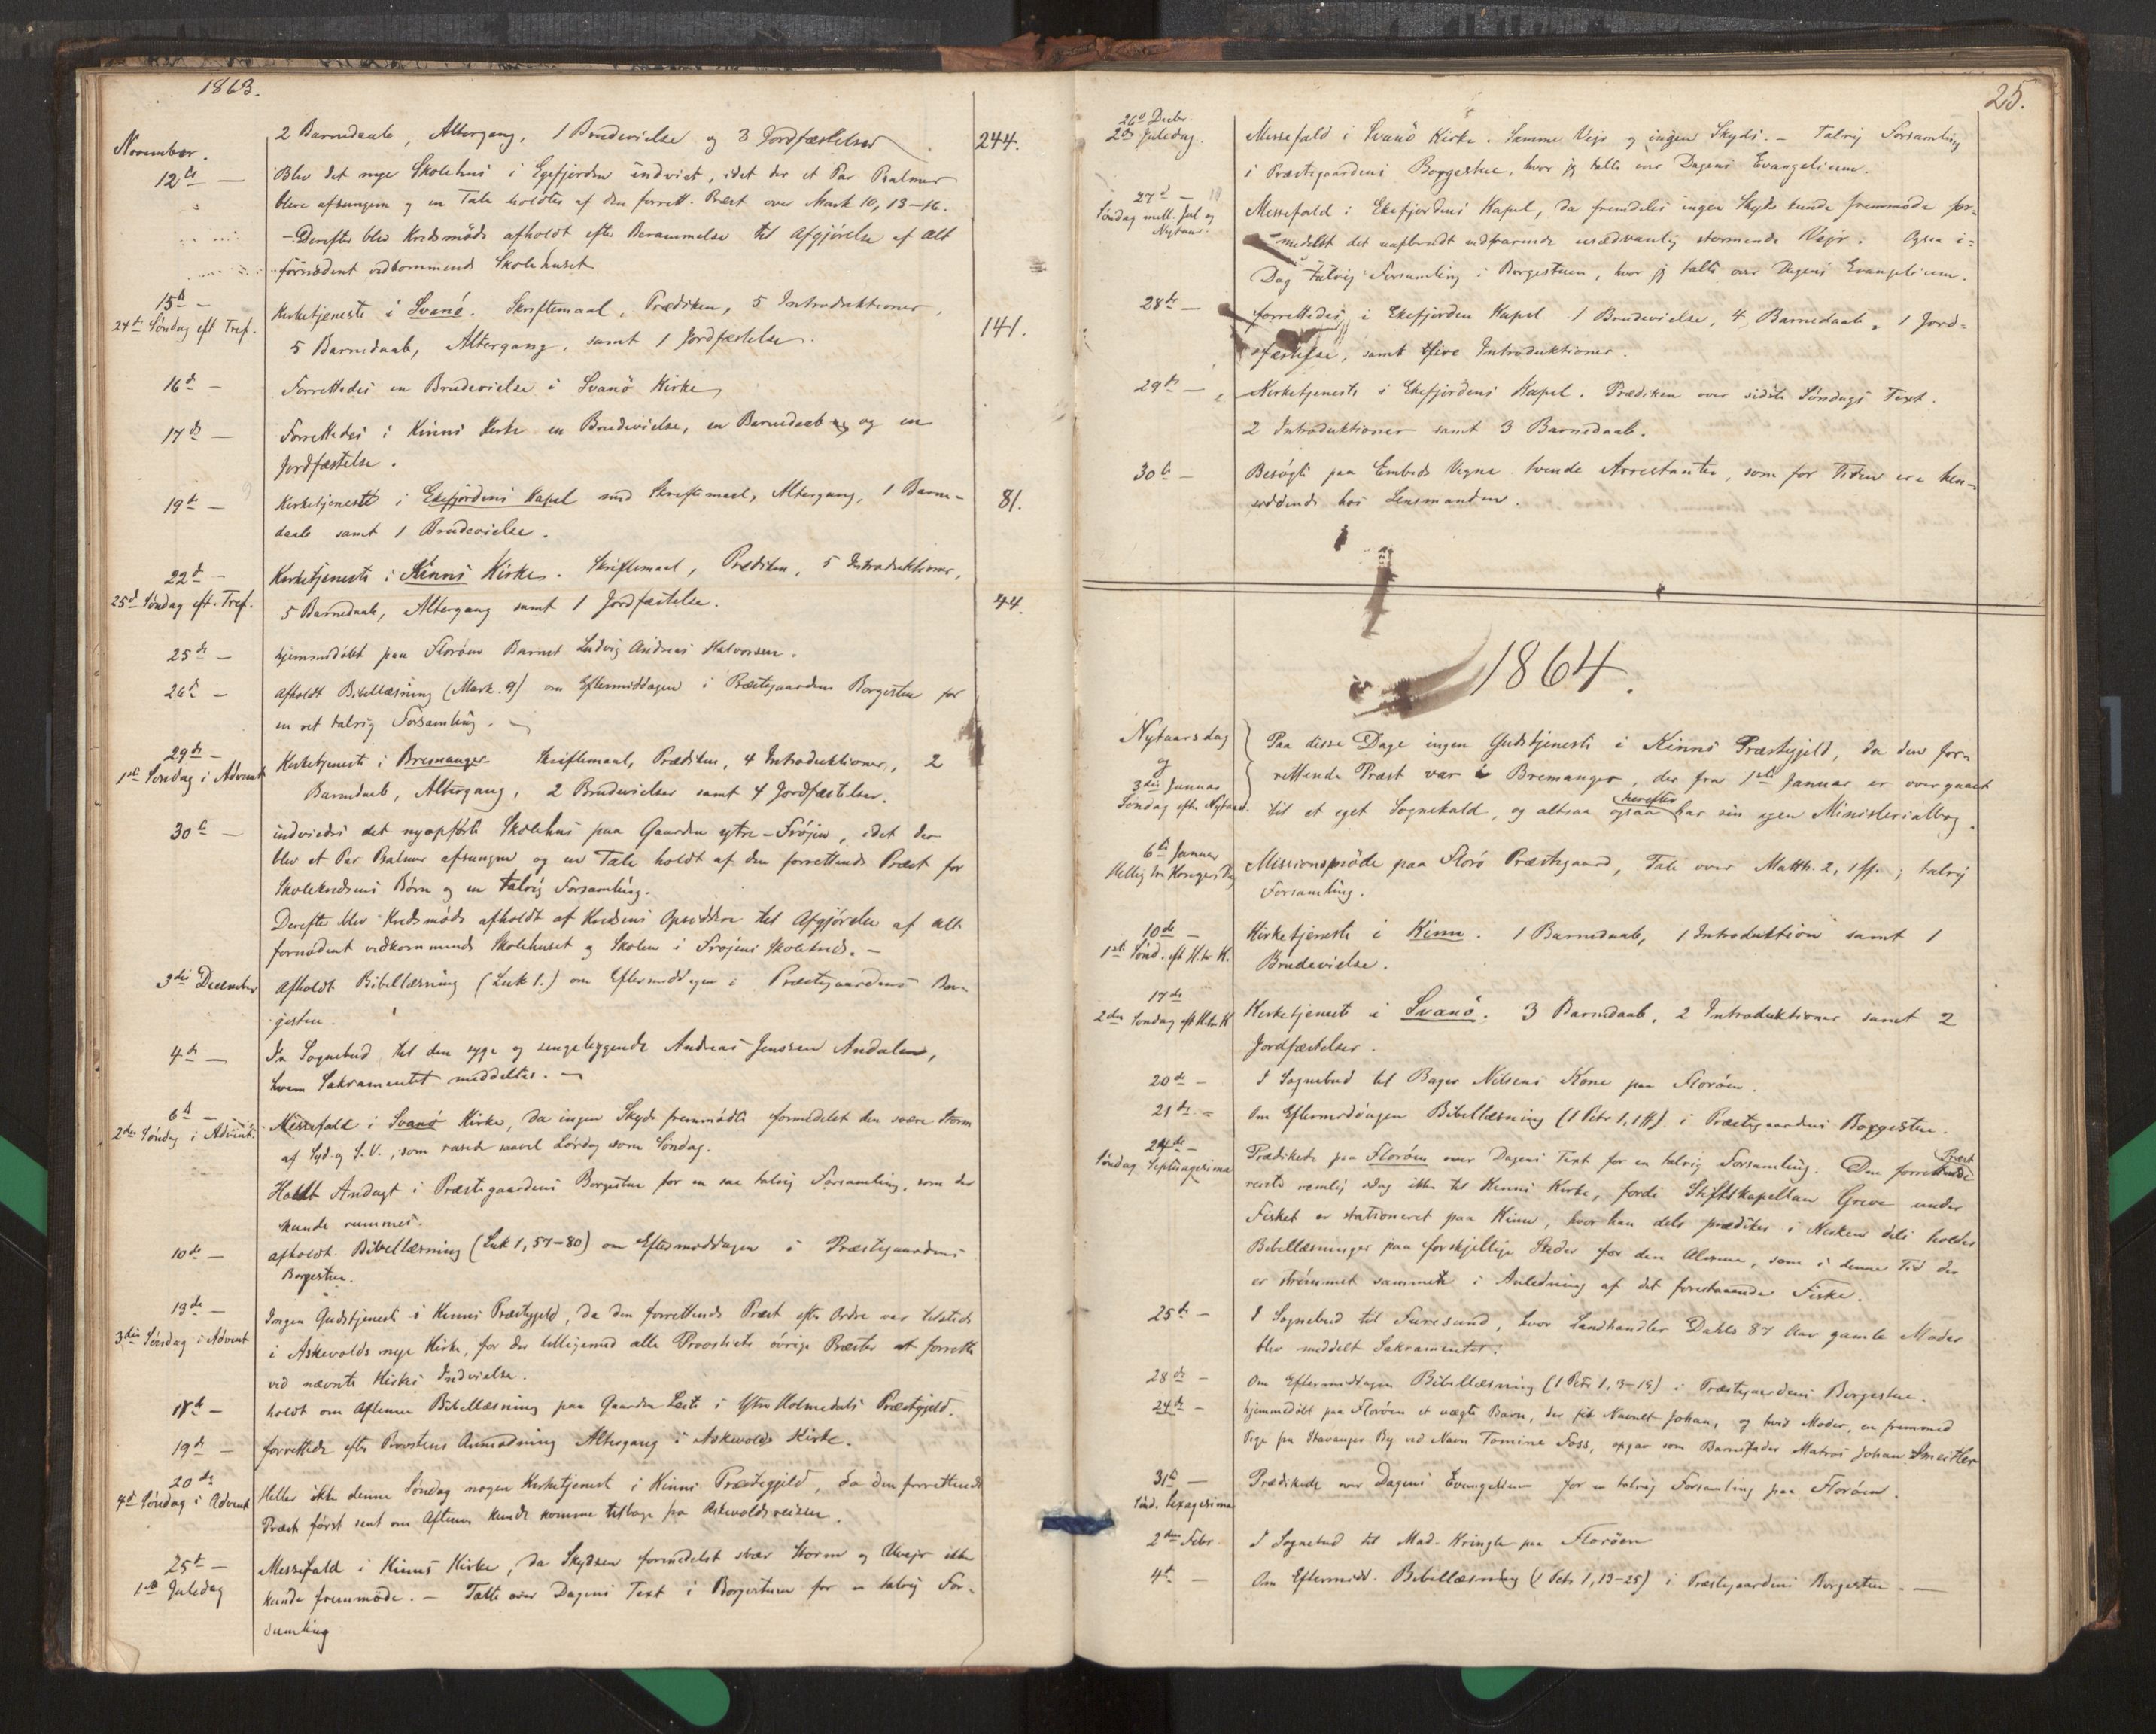 1863.
November.
2 Barnedaab, Altergang, 1 Brudevielse og 3 Jordfæstelser
244.
12te —
Blev det nye Skolehus i Eyefjorden indviet, idet der et Par Psalmer
bleve afsungen og en Tale holdtes af den forrett. Præst over Mark 10, 13-16.
- Derefter blev Kredsmöde afholdt efter Berammelse til Afgjörelse af Alt
fornödent vedkommende Skolehuset
15de —
24de Söndag eft Tref.
Kirketjeneste i Svanö. Skriftemaal, Prædiken, 5 Introduktioner,
5 Barnedaab, Altergang, samt 1 Jordfæstelse.
141.
16de —
Forrettedes en Brudevielse i Svanö Kirke
17de —
Forrettedes i Kinns Kirke en Brudevielse, en Barnedaab og en
Jordfæstelse.
19de —
Kirketjeneste i Ekefjordens Kapel med Skriftemaal, Altergang, 1 Barne-
daab samt 1 Brudevielse.
81.
22de —
25de Söndag eft. Tref.
Kirketjeneste i Kinns Kirke. Skriftemaal, Prædiken, 5 Introduktioner,
5 Barnedaab, Altergang samt 1 Jordfæstelse.
44.
25de —
hjemmedöbt paa Floröen Barnet Ludvig Andreas Halvorsen.
26de —
Afholdt Bibellæsning (Mark. 9) om Eftermiddagen i Præstegaardens Borgestue for
en ret talrig Forsamling.
29de —
1ste Söndag i Advent
Kirketjeneste i Bremanger. Skriftemaal, Prædiken, 4 Introduktioner, 2
Barnedaab, Altergang, 2 Brudevielser samt 4 Jordfæstelser.
30te —
indviedes det nyopförte Skolehus paa Gaarden ytre-Fröjen, idet der
blev et Par Psalmer afsungne og en Tale holdt af den forrettende Præst for
Skolekredsens Börn og en talrig Forsamling.
Derefter blev Kredsmöde afholdt af Kredsens Opsiddere til Afgjörelse af alt
fornödent vedkommende Skolehuset og Skolen i Fröjens Skolekreds. —
3die December
Afholdt Bibellæsning (Luk 1.) om Eftermiddagen i Præstegaardens Bor-
gestue.
4de —
In Sognebud til den syge og sengeliggende Andreas Jenssen Andalen,
hvem Sakramentet meddeltes. —
6te —
2den Söndag i Advent.
Messefald i Svanö Kirke, da ingen Skyds fremmödte formedelst den svære Storm
af Syd og S.V., som rasede saavel Lördag som Söndag.
Holdt Andagt i Præstegaardens Borgestue for en saa talrig Forsamling, som der
kunde rummes.
10de —
afholdt Bibellæsning (Luk 1, 57-80) om Eftermiddagen i Præstegaardens
Borgestue.
13de —
3die Söndag i Advent
Ingen Gudstjeneste i Kinns Præstegjeld, da den forrettende Præst efter Ordre var tilstede
i Askevolds nye Kirke, for der tilligemed alle Provstiets övrige Præster at forrette
ved nævnte Kirkes Indvielse.
18de —
holdt om Aftenen Bibellæsning paa Gaarden Leite i Ytre Holmedals Præstegjeld.
19de —
forrettede efter Provstens Anmodning Altergang i Askevolds Kirke.
20de
4de Söndag i Advent
Heller ikke denne Söndag nogen Kirketjeneste i Kinns Præstegjeld, da den forrettende
Præst först sent om Aftenen kunde komme tilbage fra Askevoldsreisen.
25de —
1ste Juledag
Messefald i Kinns Kirke, da Skydsen formedelst svær Storm og Uvejr ikke
kunde fremmöde. — Talte over Dagens Text i Borgestuen for en talrig For-
samling
25.
26de Decbr.
2den Juledag.
Messefald i Svanö Kirke. Samme Vejr og ingen Skyds. — Talrig Forsamling
i Præstegaardens Borgestue, hvor jeg talte over Dagens Evangelium.
27de —
Söndag mell. Jul og
Nytaar.
Messefald i Ekefjordens Kapel, da fremdeles ingen Skyds kunde fremmöde for-
medelst det uafbrudt vedvarende usædvanlig stormende Vejr. Ogsaa i-
Dag talrig Forsamling i Borgestuen, hvor jeg talte over Dagens Evangelium.
28de —
forrettedes i Ekefjorden Kapel 1 Brudevielse, 4 Barnedaab, 1 Jord-
fæstelse, samt fire Introduktioner.
29de —
Kirketjeneste i Ekefjordens Kapel. Prædiken over sidste Söndags Text.
2 Introduktioner samt 3 Barnedaab.
30te —
Besögte paa Embeds Vegne tvende Arrestanter, som for Tiden ere hen-
siddende hos Lensmanden.
1864.
Nytaarsdag
og
3die Januar
Söndag efter Nytaar.
Paa disse Dage ingen Gudstjeneste i Kinns Præstegjeld, da den for-
rettende Præst var i Bremanger, der fra 1ste Januar er overgaaet
til et eget Sognekald, og altsaa ogsaa herefter har sin egen Ministerialbog.
6te Januar
Hellig tre Kongers Dag
Missionsmöde paa Florö Præstegaard, Tale over Matth. 2, 1ff.; talrig
Forsamling.
10de —
1ste Sönd. eft H. tre K.
Kirketjeneste i Kinn. 1 Barnedaab, 1 Introduktion samt 1
Brudevielse.
17de
2den Söndag eft H. tre K
Kirketjeneste i Svanö. 3 Barnedaab, 2 Introduktioner samt 2
Jordfæstelser.
20de —
I Sognebud til Bager Nilsens Kone paa Floröen.
21de —
Om Eftermiddagen Bibellæsning (1 Petr 1, 1ff) i Præstegaardens Borgestue.
24de —
Söndag Septuagesima
Prædikede paa Floröen over Dagens Text for en talrig Forsamling. Den forrettende Præst
reiste nemlig idag ikke til Kinns Kirke, fordi Stiftskapellan Greve under
Fisket er stationeret paa Kinn, hvor han dels prædiker i Kirken dels holder
Bibellæsninger paa forskjellige Steder for den Almue, som i denne Tid der
er strömmet sammen i Anledning af det forestaaende Fiske.
25de —
I Sognebud til Furesund, hvor Landhandler Dahls 87 Aar gamle Moder
blev meddelt Sakramentet.
28de —
Om Eftermiddagen Bibellæsning (1 Petr 1, 3-15) i Præstegaardens Borgestue.
24de —
hjemmedöbt paa Floröen et uægte Barn, der fik Navnet Johan, og hvis Moder, en fremmed
Pige fra Stavanger By ved Navn Tomine Foss, opgav som Barnefader Matros Johan
31te —
Sönd. Sexagesima
Prædikede over Dagens Evangelium for en talrig Forsamling paa Floröen.
2den Febr.
I Sognebud til Mad. Kringle paa Floröen
4de —
Om Eftermidd. Bibellæsning (1 Petr 1, 13-25) i Præstegaardens Borgestue. —